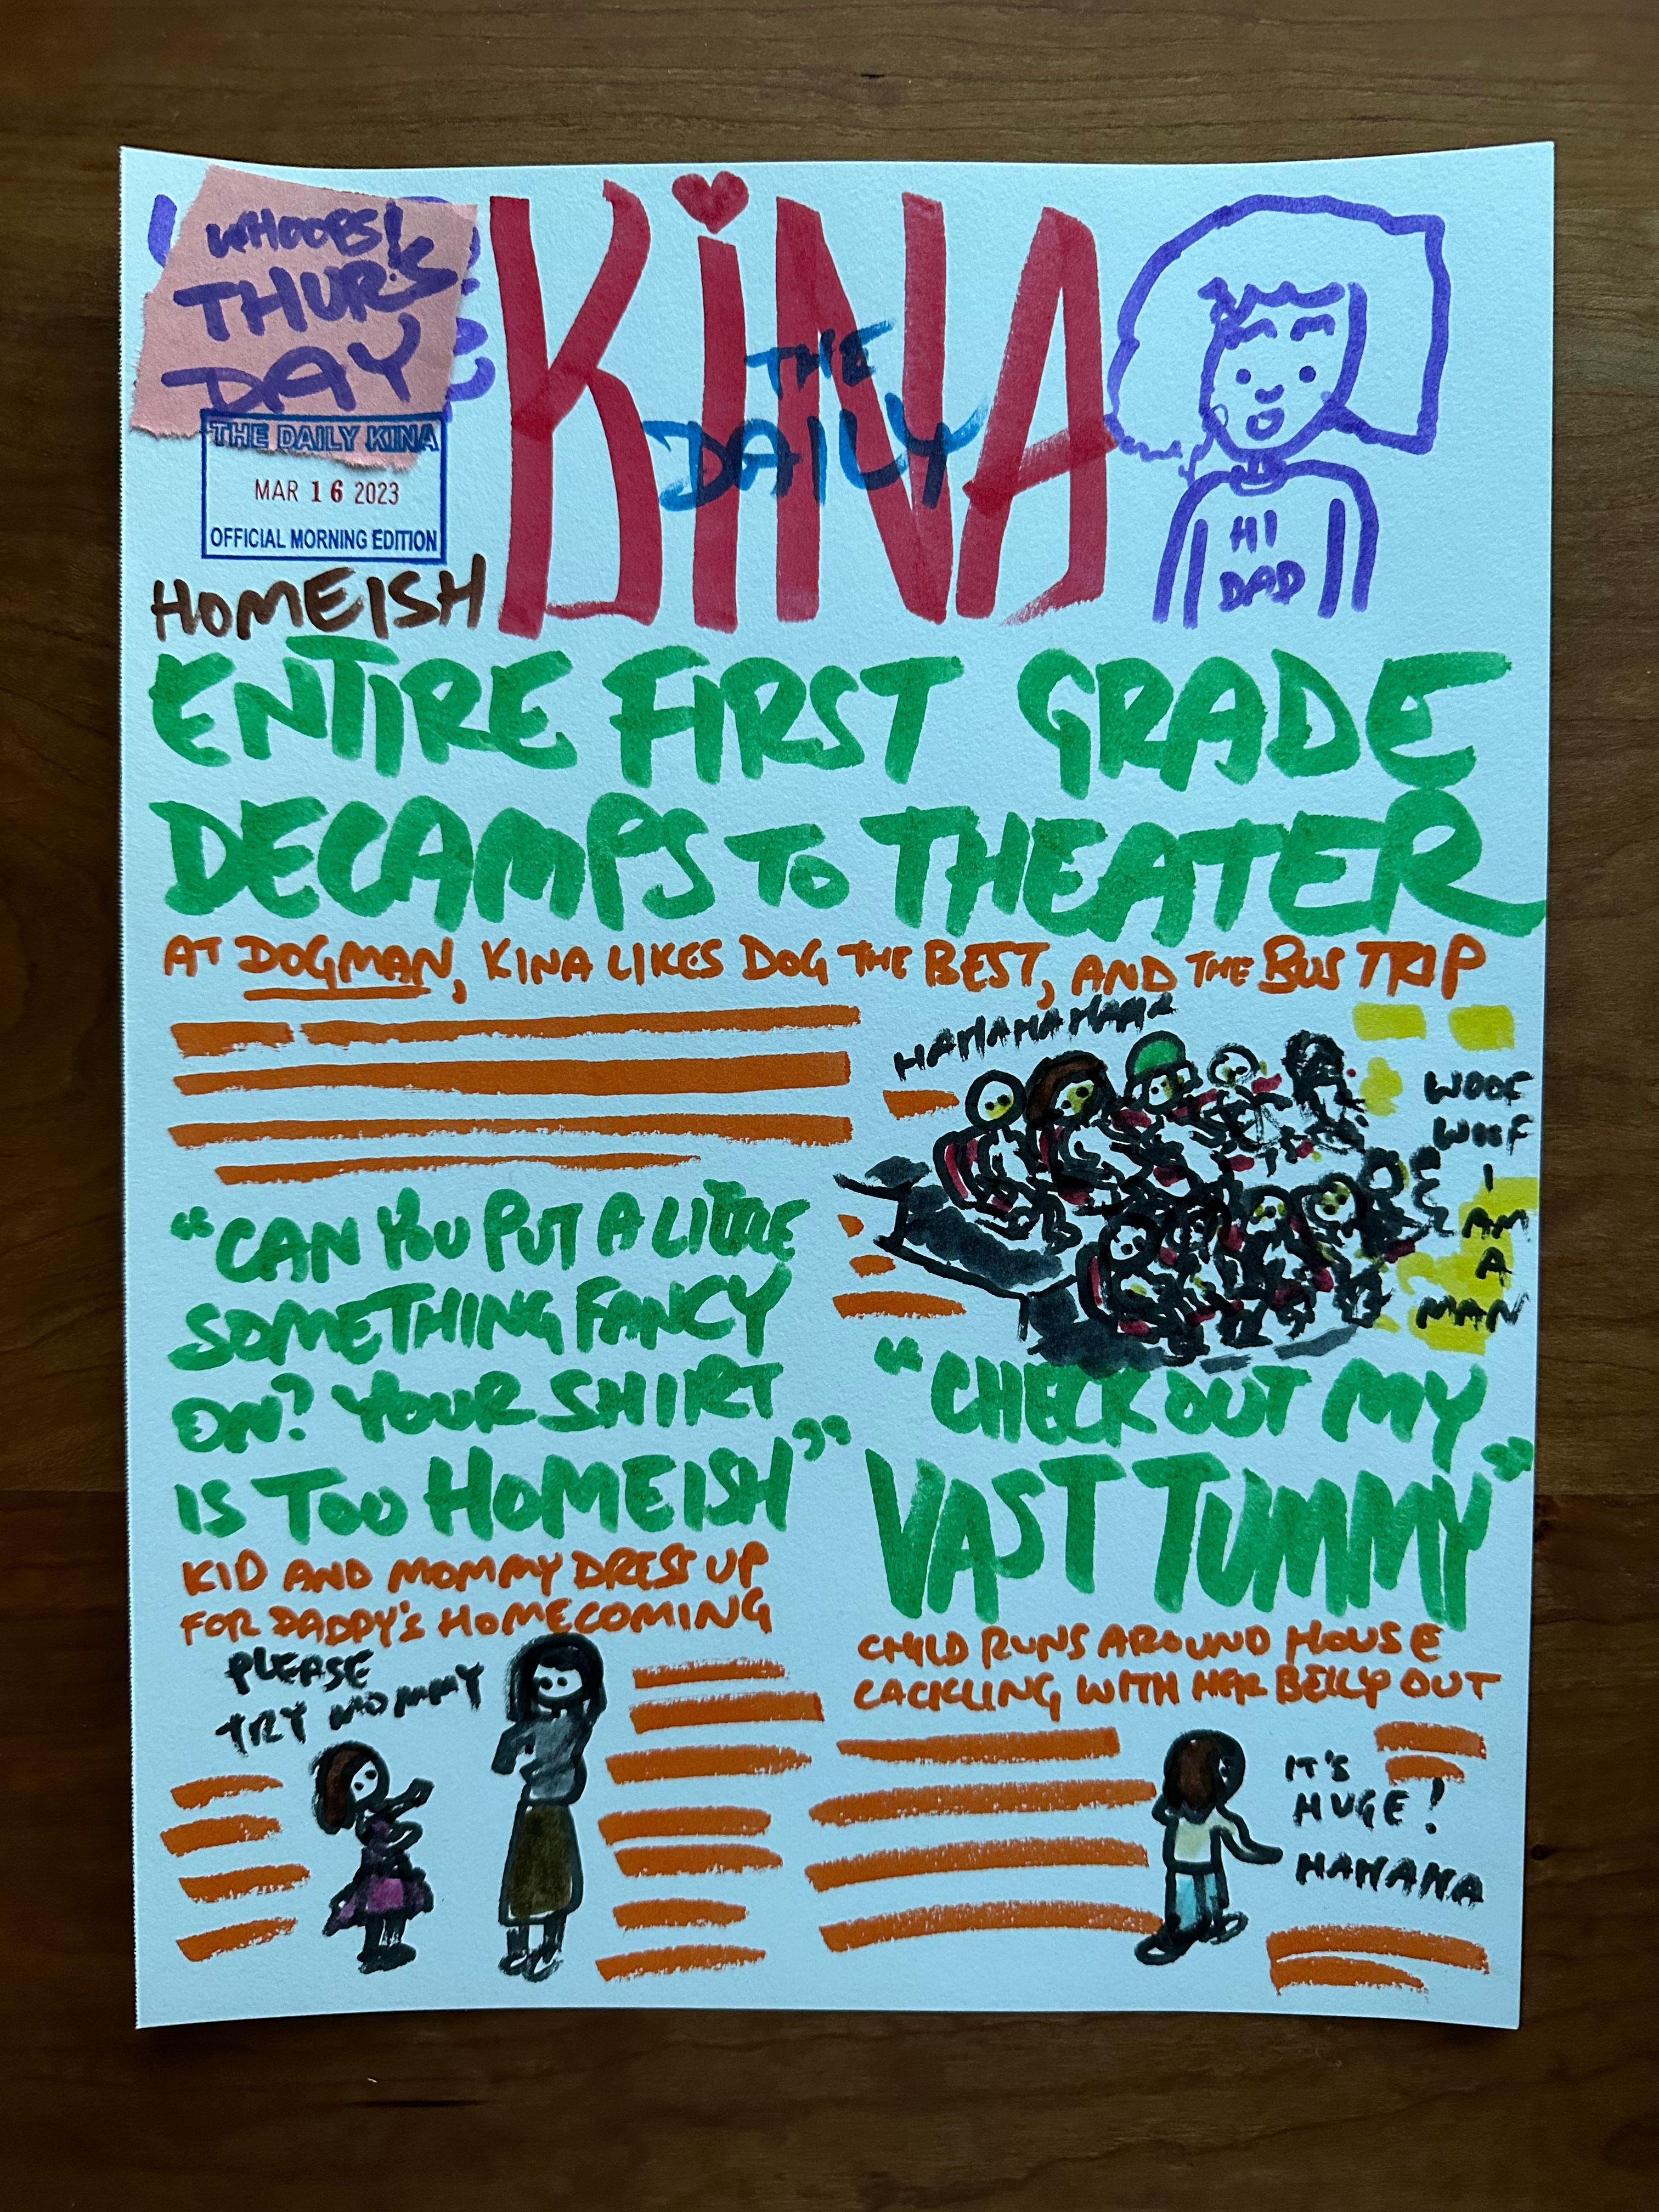 WHOOPS!
THUR'S
DAY
THE DAILY KINA
MAR 16 2023
OFFICIAL MORNING EDITION
HOMEISH
KiNA
THE
DAILY
HI
DAD
ENTIRE FIRST GRADE
DECAMPS TO THEATER
AT DOGMAN, KINA LIKES DOG THE BEST, AND THE BUS TRIP
HAHAHAHAHA
WOOF
WOOF
I
AM
A
MAN
"CAN YOU PUT A LITTLE
SOMETHING FANCY
ON? YOUR SHIRT
IS TOO HOMEISH"
KID AND MOMMY DRESS UP
FOR DADDY'S HOMECOMING
PLEASE
TRY MOMMY
"CHECK OUT MY
VAST TUMMY"
CHILD RUNS AROUND HOUSE
CACKLING WITH HER BELLY OUT
IT'S
HUGE!
HAHAHA